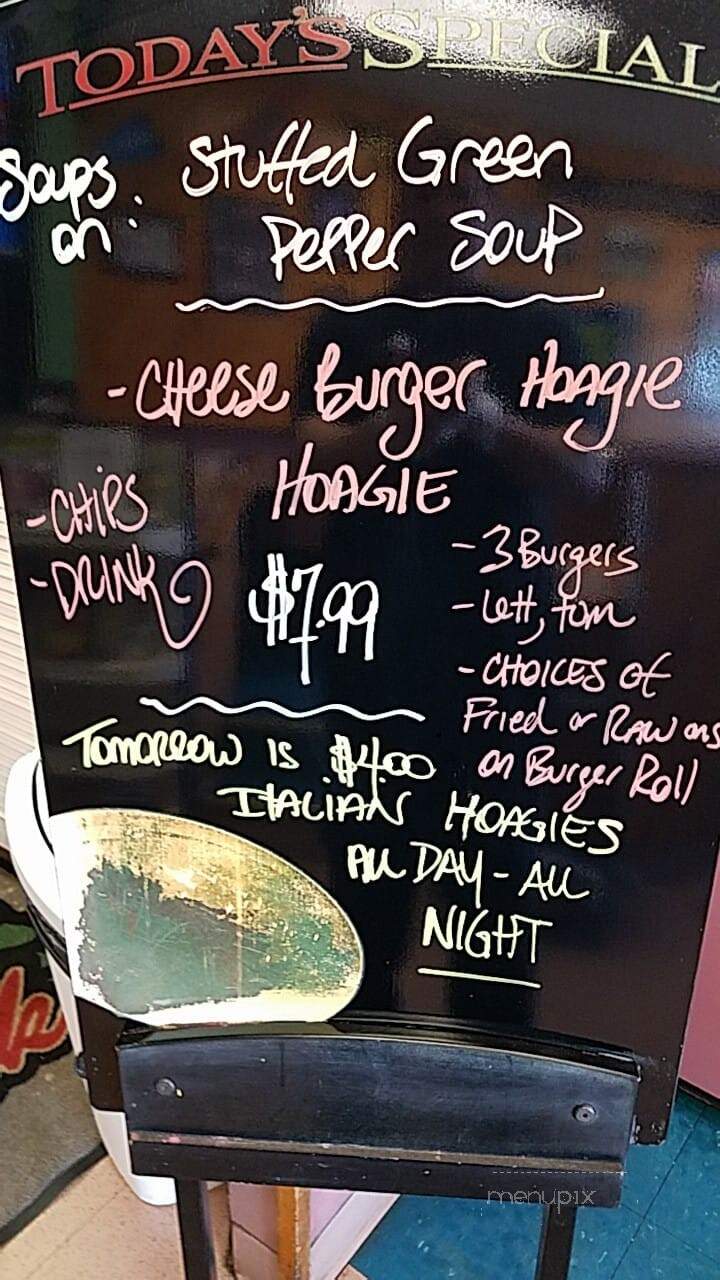 TODAY'S SPECIAL
Soups on: Stuffed Green
Pepper Soup
- Cheese Burger Hoagie
HOAGIE
- CHIPS
- DRINK
$7.99
- 3 Burgers
- Lett, tom
- CHOICES of
Fried or RAW ons
on Burger Roll
Tomorrow is $4.00
ITALIAN HOAGIES
All DAY - All
NIGHT
menupix